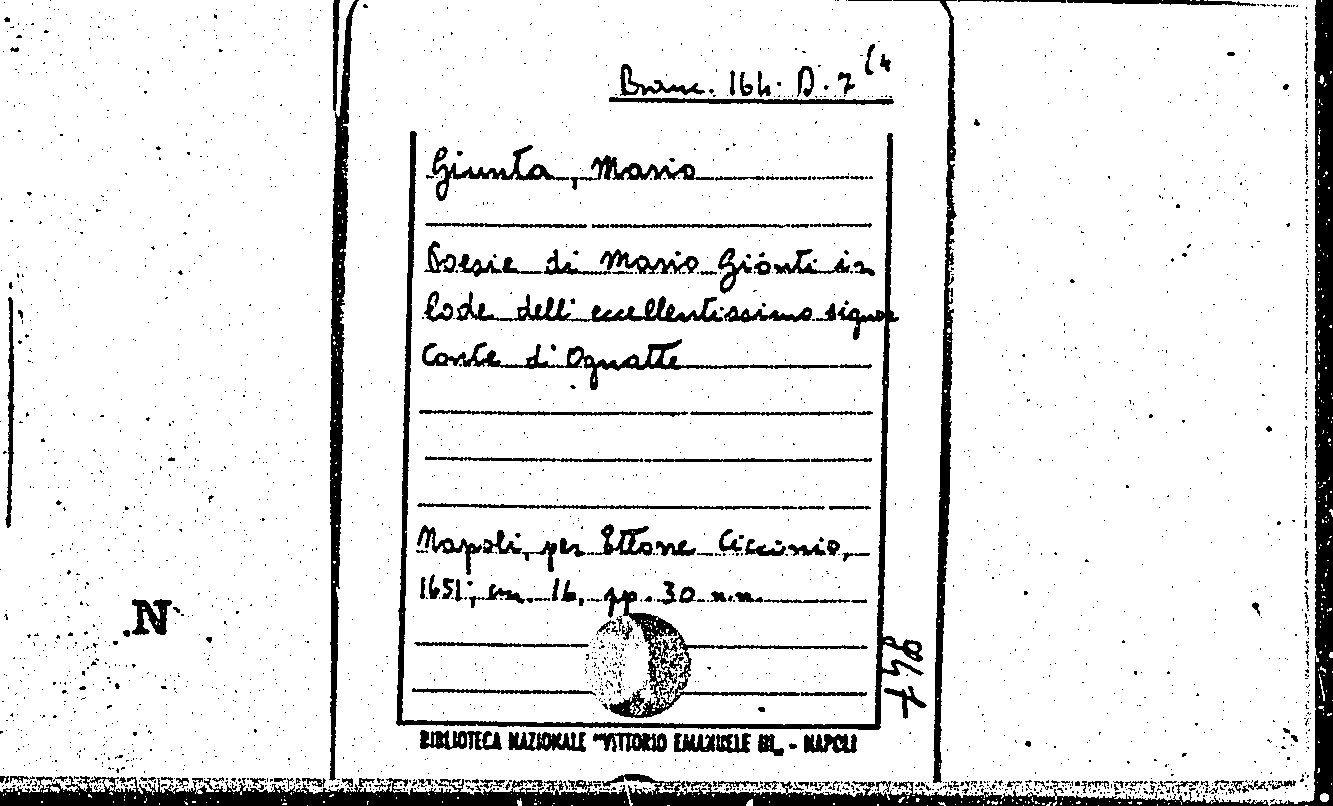 Branc. 164. D. 7 (4
Giunta, Mario
Poesie di Mario Gionti in
lode dell' eccellentissimo signor
Conte di Ognatte
Napoli, per Ettorre Cicconio,
1651; cm. 16, pp. 30 n.n.
N
748
BIBLIOTECA NAZIONALE "VITTORIO EMANUELE III„ - NAPOLI